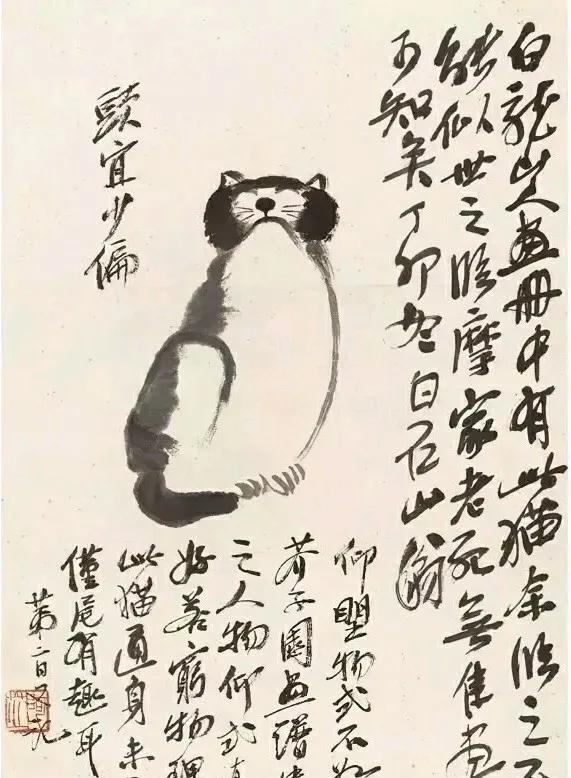 白龍山人畫冊中有此猫余臨之不
能似世之臨摩家老死無佳畫
可知矣丁卯冬白石山翁
頭宜少偏
仰望物式不如
芥子園畫譜
之人物仰式
好若窮物理
此猫通身未
僅尾有趣耳
第二日